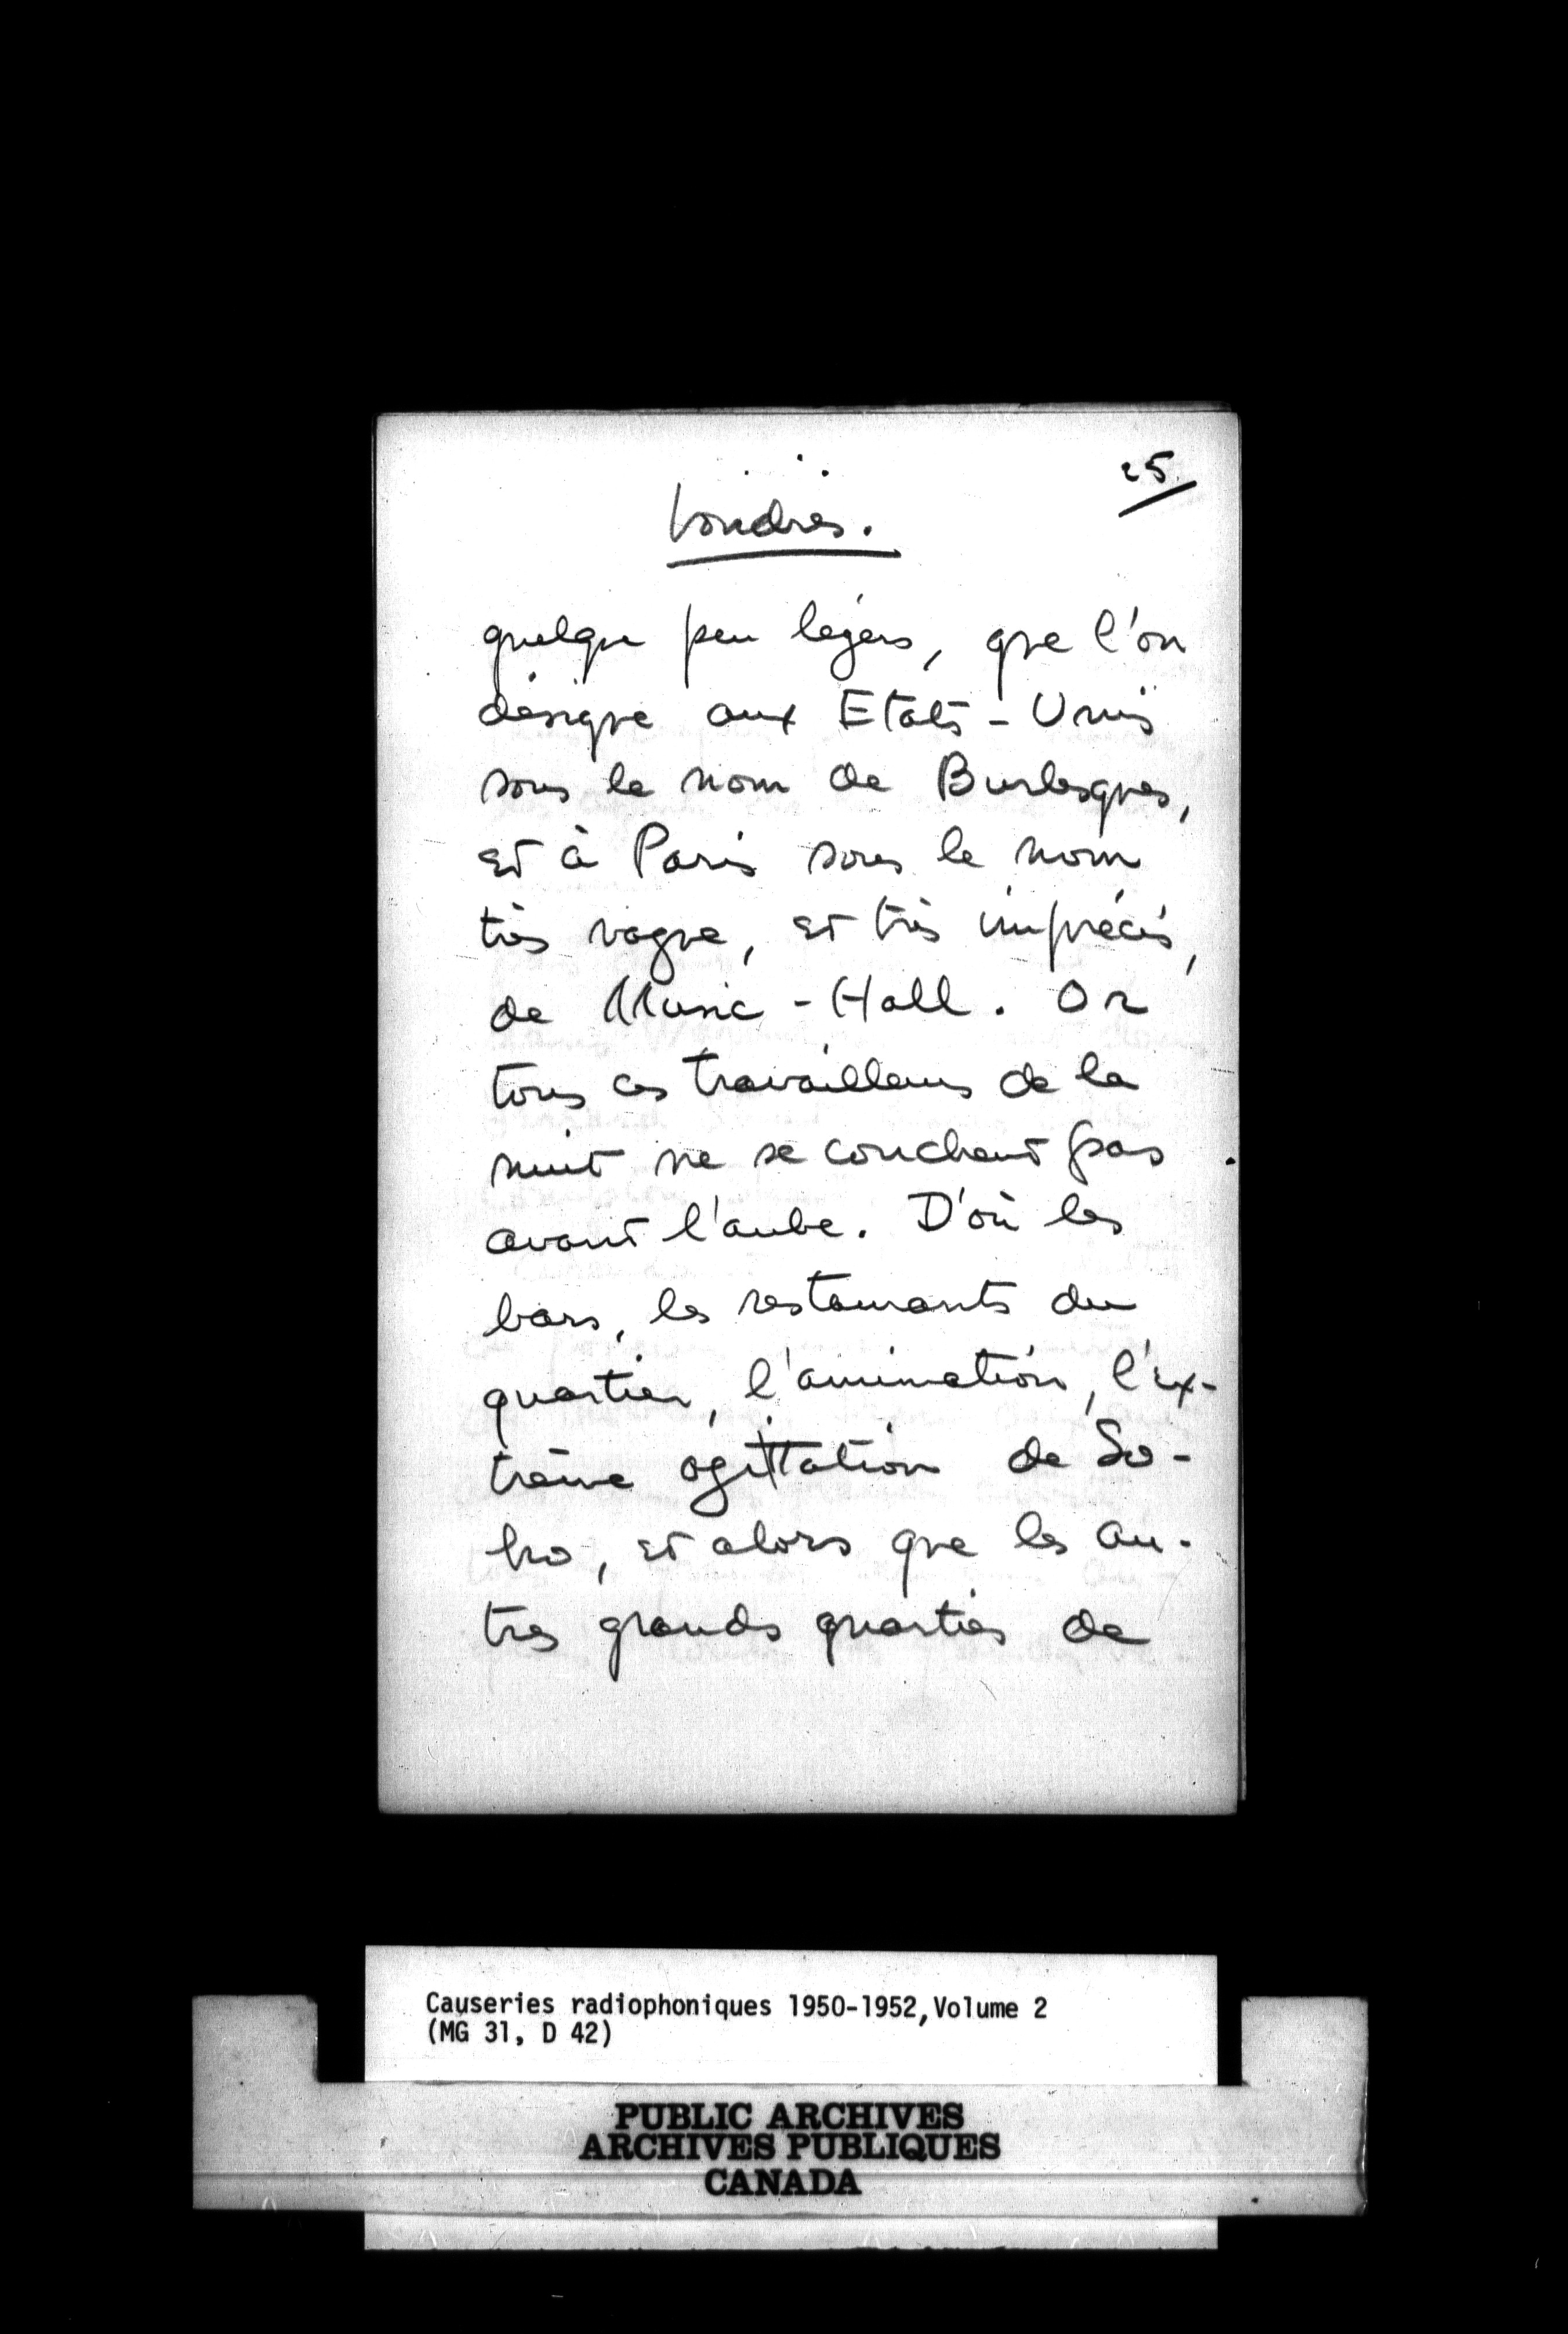 25.
Londres.
quelque peu légers, que l'on
désigne aux Etats-Unis
sous le nom de Burlesques,
et à Paris sous le nom
très vague, et très imprécis,
de Music-Hall. Or
tous ces travailleurs de la
nuit ne se couchent pas
avant l'aube. D'où les
bars, les restaurants du
quartier, l'animation, l'ex-
trême agitation de So-
ho, et alors que les au-
tres grands quartiers de
Causeries radiophoniques 1950-1952, Volume 2
(MG 31, D 42)
PUBLIC ARCHIVES
ARCHIVES PUBLIQUES
CANADA